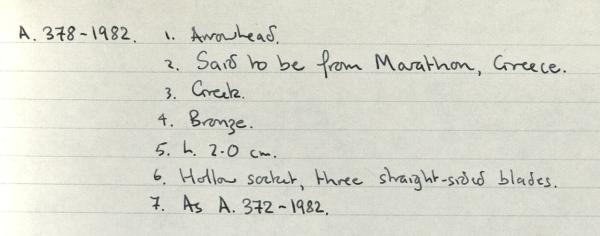 A. 378-1982. 1. Arrowhead.
2. Said to be from Marathon, Greece.
3. Greek.
4. Bronze.
5. L. 2.0 cm.
6. Hollow socket, three straight-sided blades.
7. As A. 372-1982.